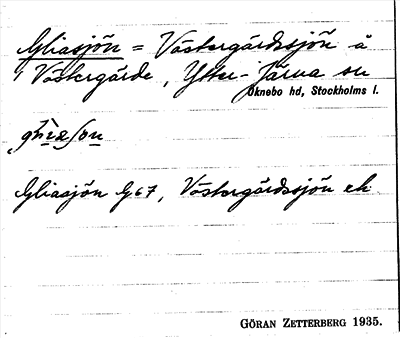 Gliasjön = Västergårdssjön å
Västergärde, Ytter-Järna sn
Öknebo hd, Stockholms l.
Gliasjön G67, Västergårdssjön ek
GÖRAN ZETTERBERG 1935.